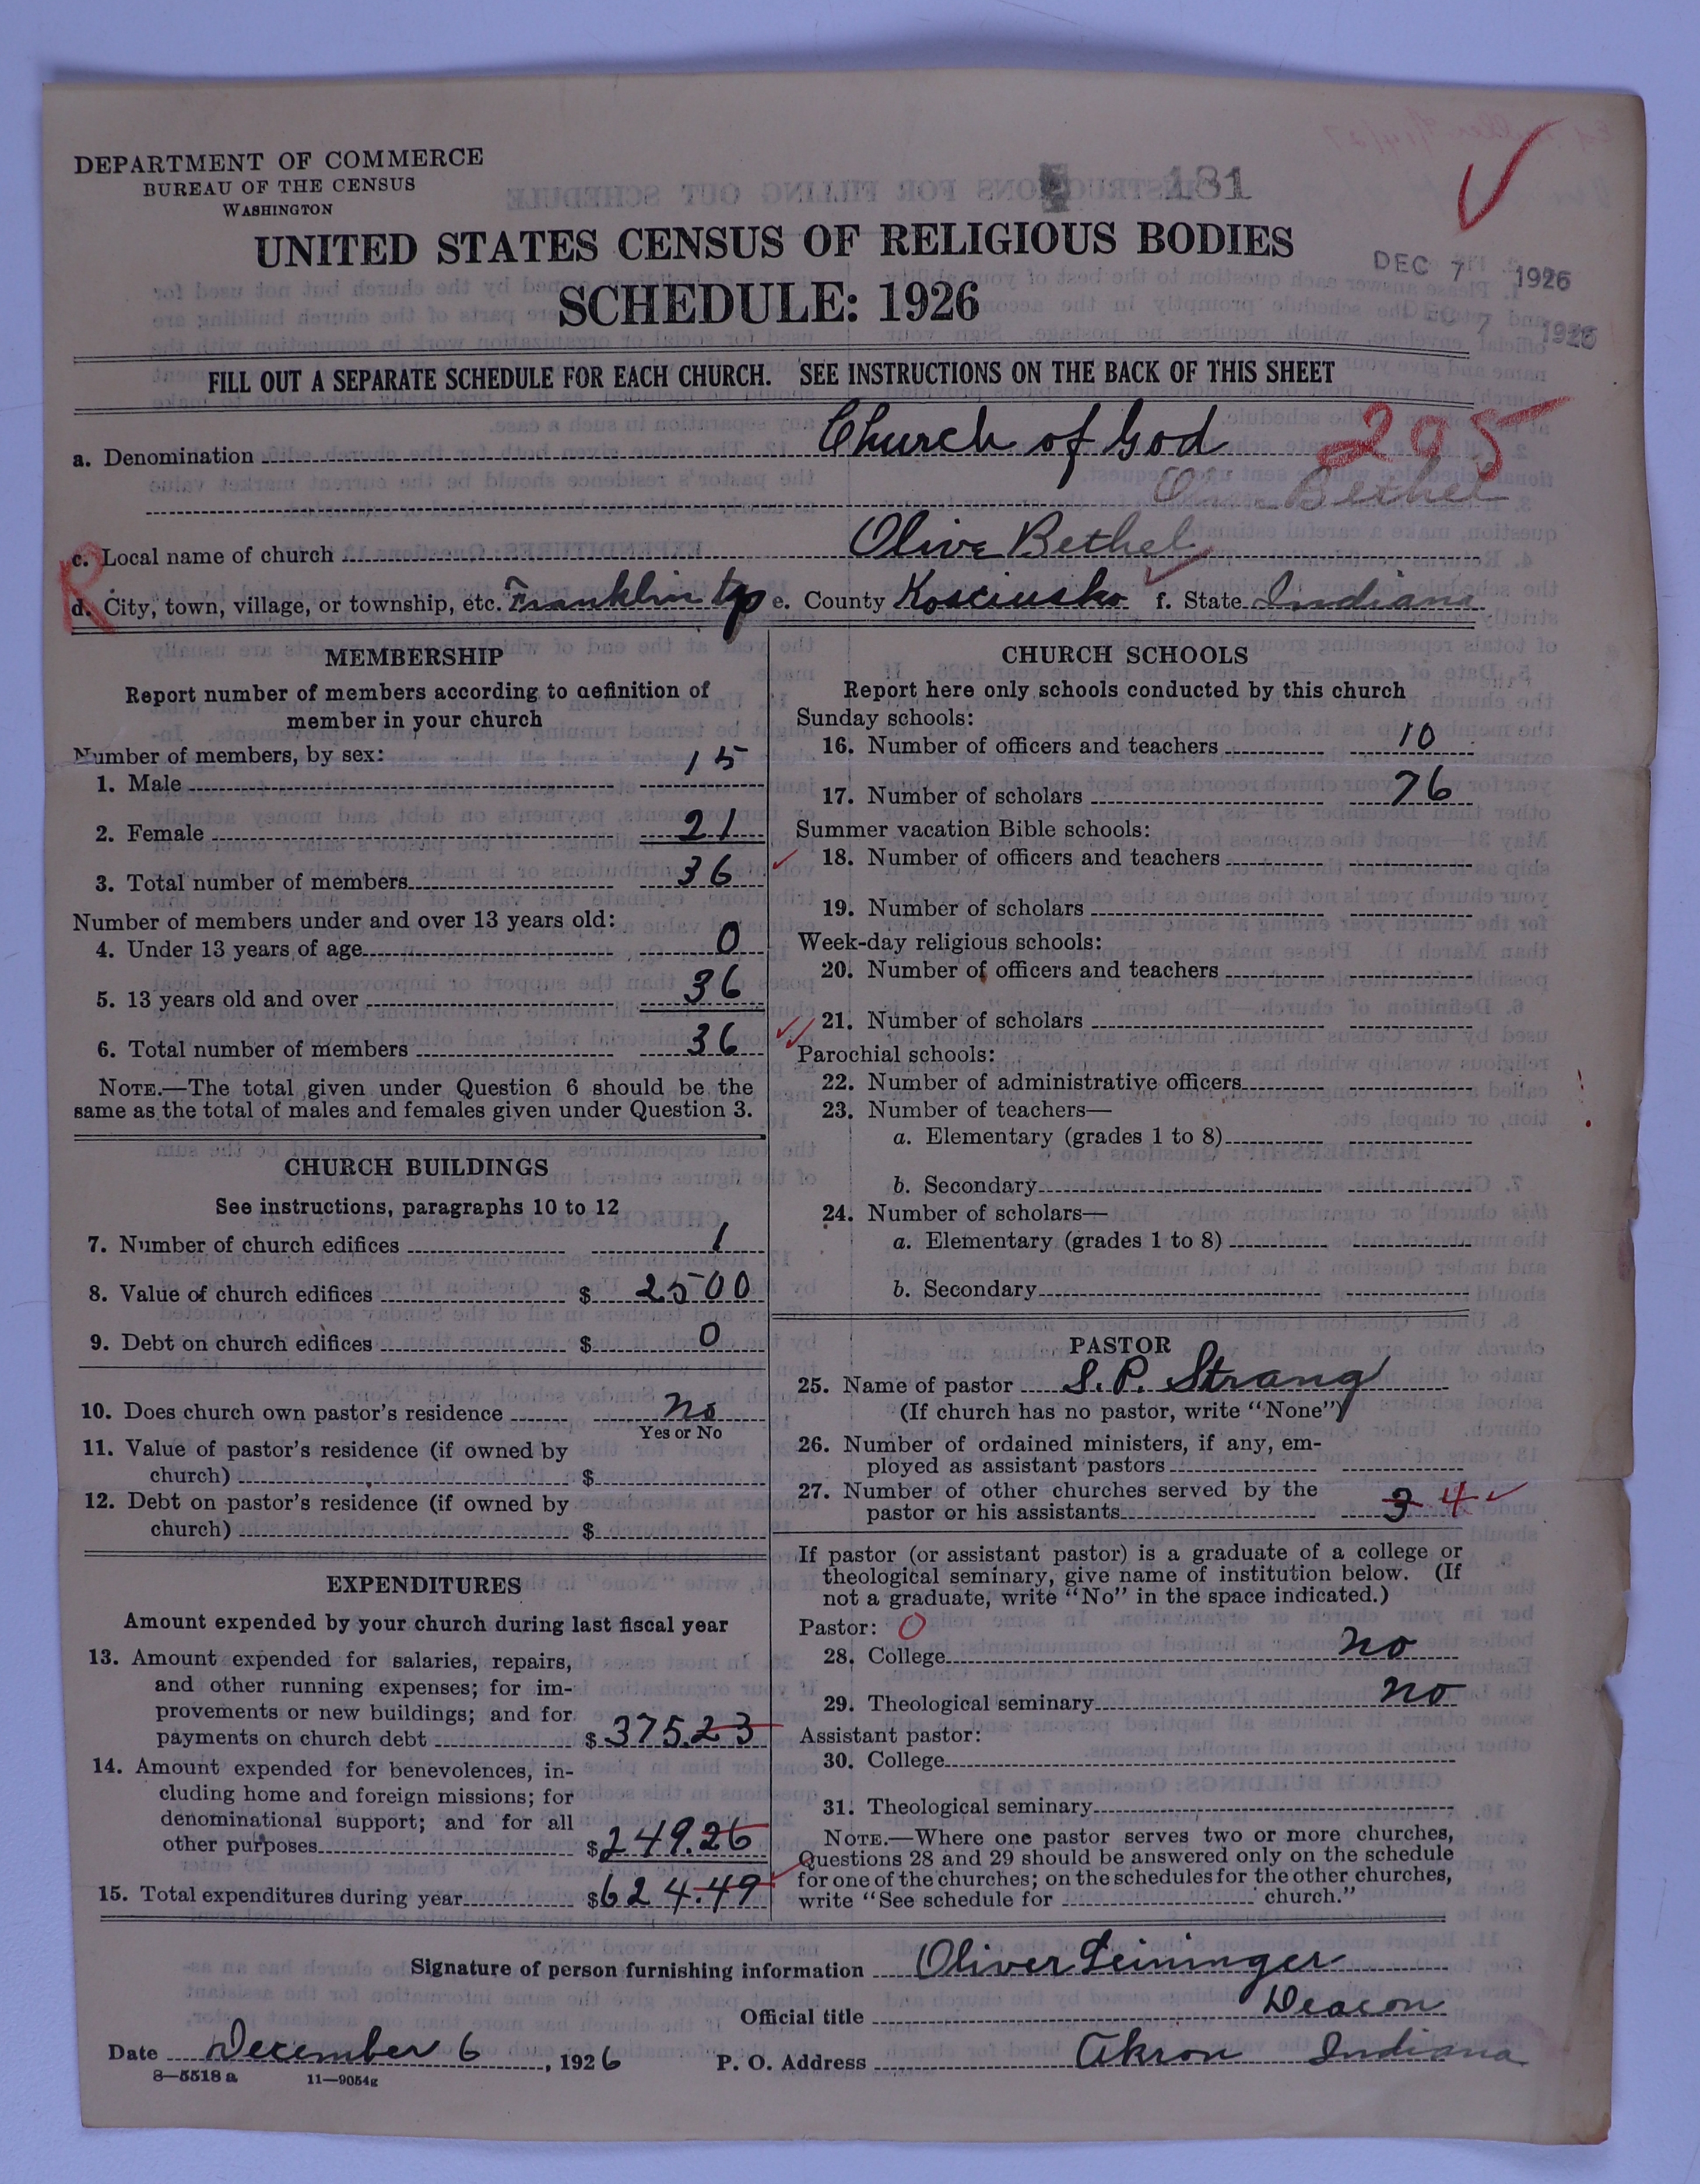 DEPARTMENT OF COMMERCE
BUREAU OF THE CENSUS
WASHINGTON
181
UNITED STATES CENSUS OF RELIGIOUS BODIES
SCHEDULE: 1926
DEC 7 1926
DEC 7 1926
FILL OUT A SEPARATE SCHEDULE FOR EACH CHURCH. SEE INSTRUCTIONS ON THE BACK OF THIS SHEET
a. Denomination Church of God 295
Olive Bethel
c. Local name of church Olive Bethel
R
d. City, town, village, or township, etc. Franklin tp e. County Kosciusko f. State Indiana
MEMBERSHIP
Report number of members according to definition of
member in your church
Number of members, by sex:
1. Male 15
2. Female 21
3. Total number of members 36
Number of members under and over 13 years old:
4. Under 13 years of age 0
5. 13 years old and over 36
6. Total number of members 36
NOTE.—The total given under Question 6 should be the
same as the total of males and females given under Question 3.
CHURCH BUILDINGS
See instructions, paragraphs 10 to 12
7. Number of church edifices 1
8. Value of church edifices $ 2500
9. Debt on church edifices $ 0
10. Does church own pastor's residence no
Yes or No
11. Value of pastor's residence (if owned by
church) $
12. Debt on pastor's residence (if owned by
church) $
EXPENDITURES
Amount expended by your church during last fiscal year
13. Amount expended for salaries, repairs,
and other running expenses; for im-
provements or new buildings; and for
payments on church debt $ 375.23
14. Amount expended for benevolences, in-
cluding home and foreign missions; for
denominational support; and for all
other purposes $ 249.26
15. Total expenditures during year $ 624.49
CHURCH SCHOOLS
Report here only schools conducted by this church
Sunday schools:
16. Number of officers and teachers 10
17. Number of scholars 76
Summer vacation Bible schools:
18. Number of officers and teachers
19. Number of scholars
Week-day religious schools:
20. Number of officers and teachers
21. Number of scholars
Parochial schools:
22. Number of administrative officers
23. Number of teachers—
a. Elementary (grades 1 to 8)
b. Secondary
24. Number of scholars—
a. Elementary (grades 1 to 8)
b. Secondary
PASTOR
25. Name of pastor S. P. Strang
(If church has no pastor, write "None")
26. Number of ordained ministers, if any, em-
ployed as assistant pastors
27. Number of other churches served by the
pastor or his assistants 3 4
If pastor (or assistant pastor) is a graduate of a college or
theological seminary, give name of institution below. (If
not a graduate, write "No" in the space indicated.)
Pastor: 0
28. College no
29. Theological seminary no
Assistant pastor:
30. College
31. Theological seminary
NOTE.—Where one pastor serves two or more churches,
Questions 28 and 29 should be answered only on the schedule
for one of the churches; on the schedules for the other churches,
write "See schedule for church."
Signature of person furnishing information Oliver Leininger
Official title Deacon
Date December 6, 1926 P. O. Address Akron Indiana
8—5518 a 11—9054g